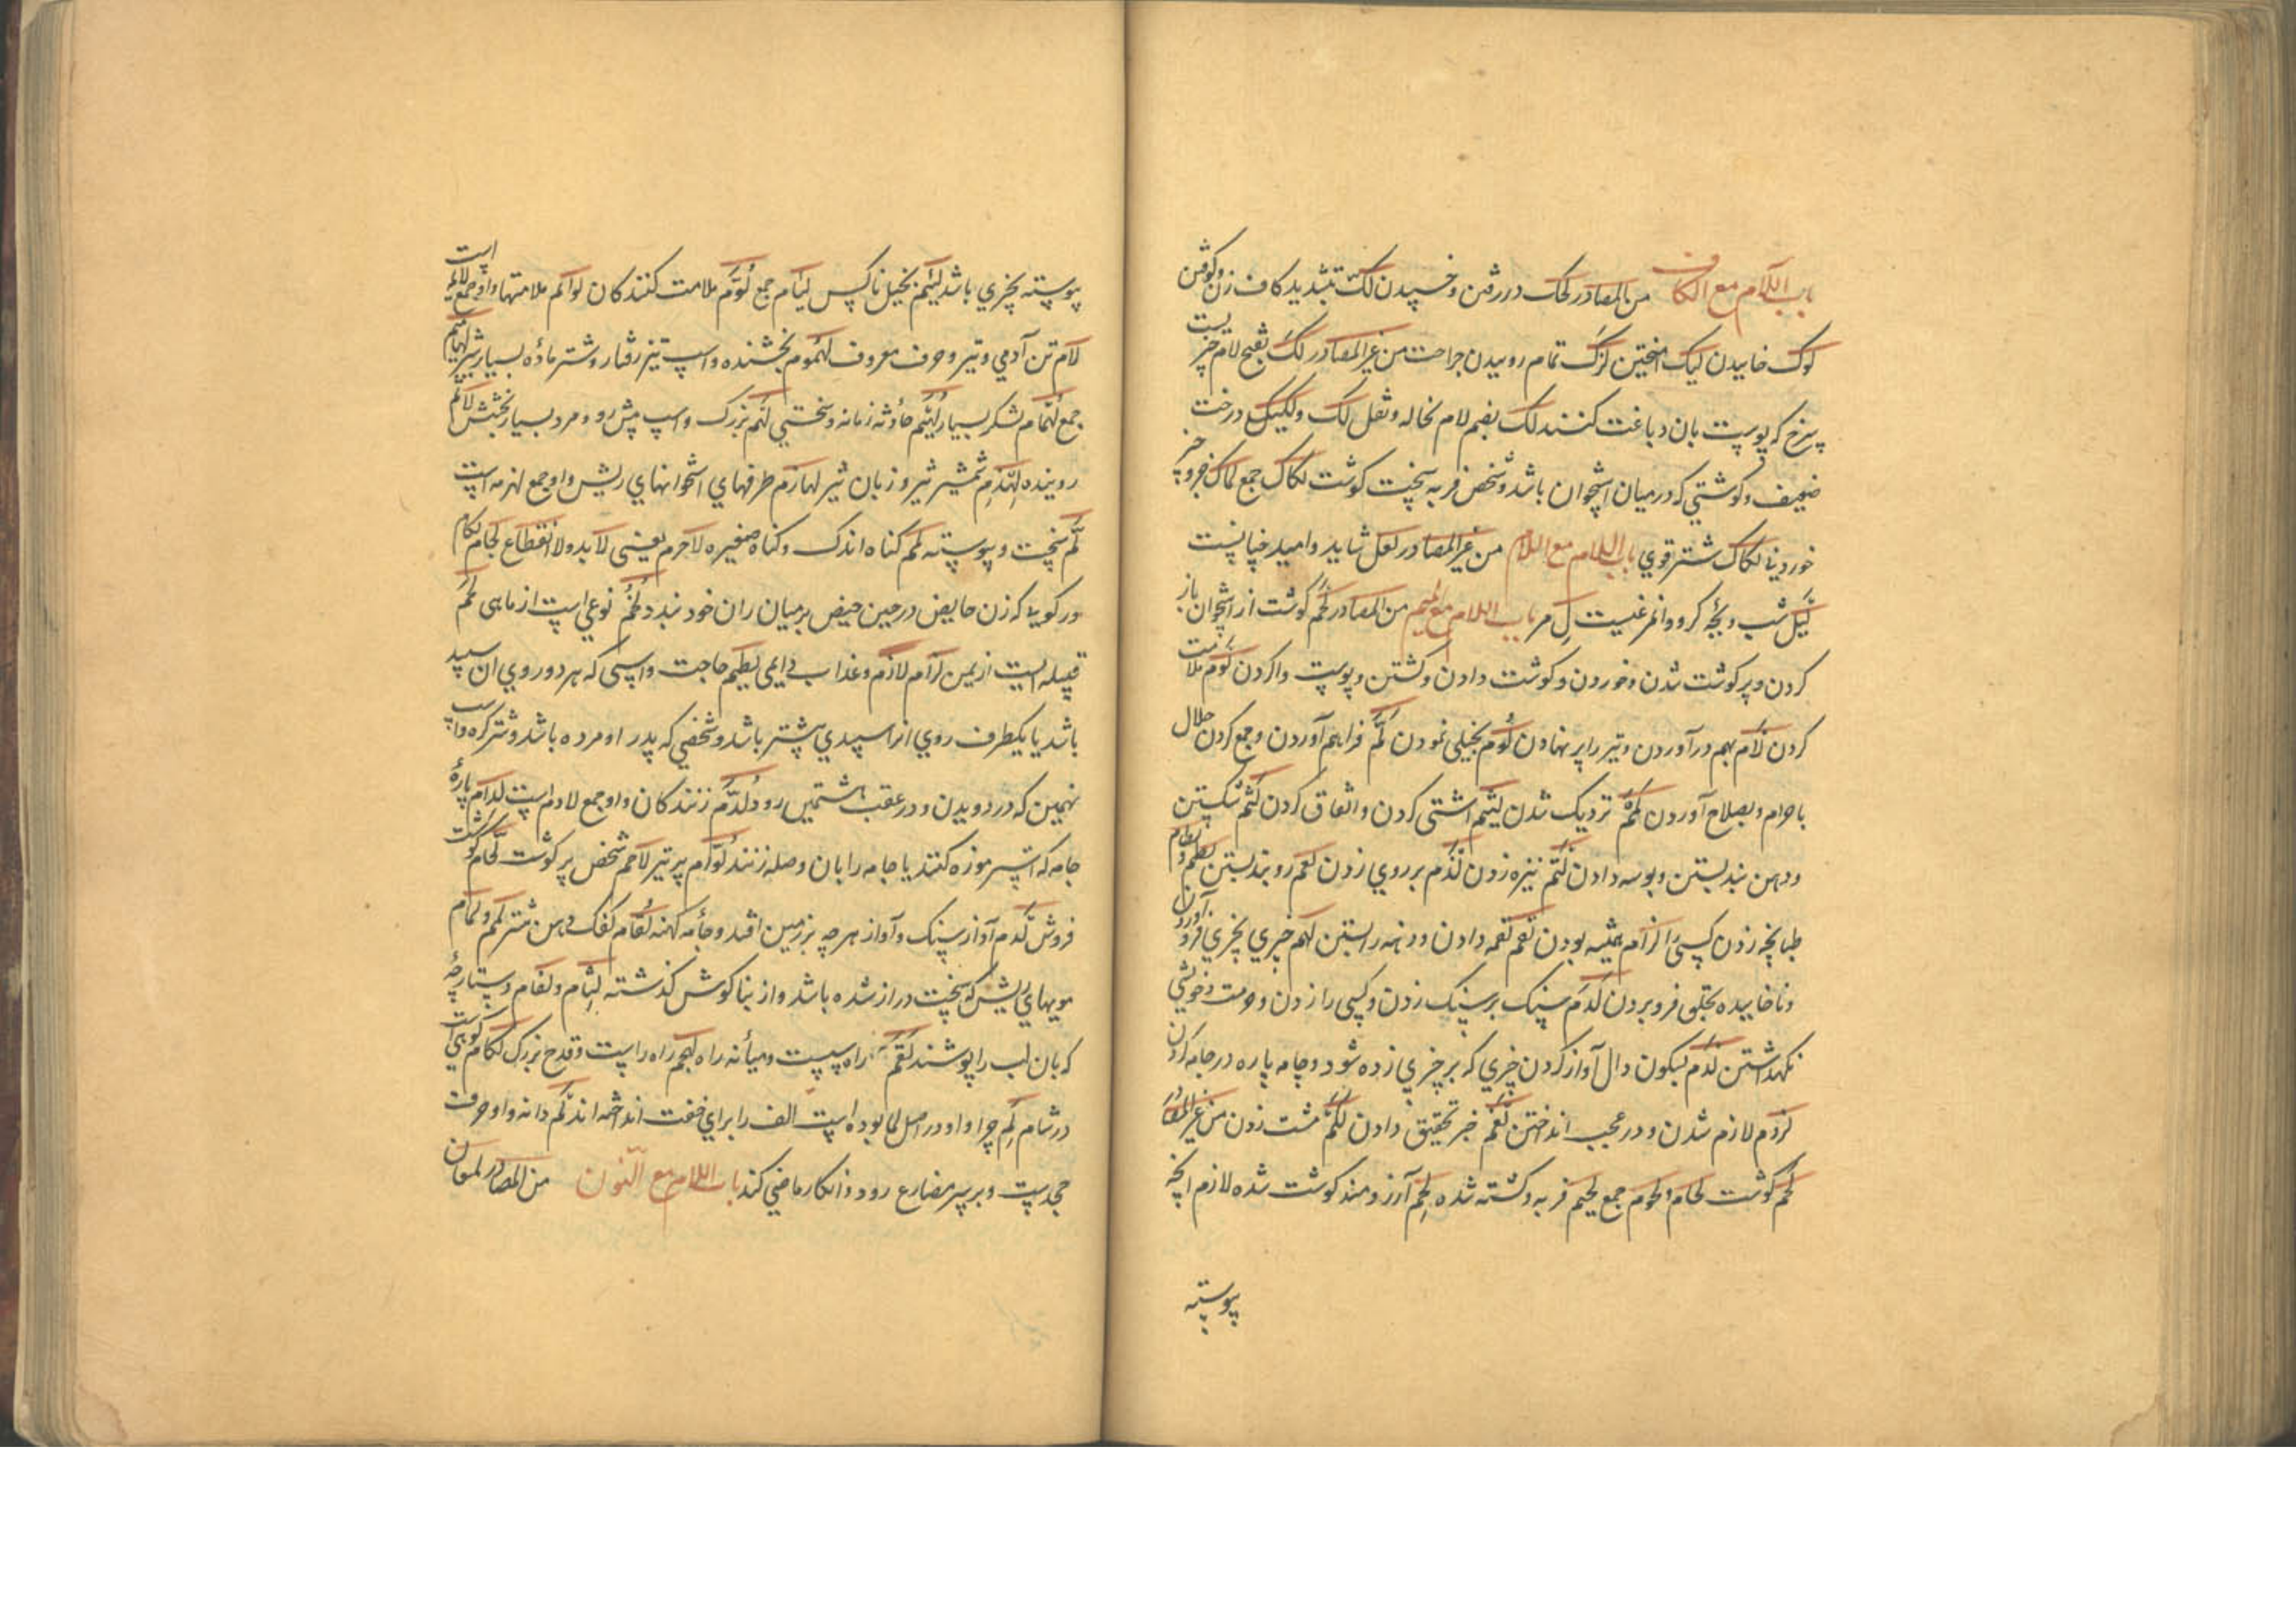 باب اللام مع الکاف من المصادر لحک در رفتن و خسپیدن لکّ بتشدید کاف زدن و کوفتن
لوک خاییدن لیک امیختن لزک تمام روییدن جراحت من غیر المصادر لک بفتح لام چیزیست
سرخ که پوست بان دباغت کنند لک بضم لام نخاله و ثفل لک و لکیک درخت
ضعیف و کوشتی که در میان استخوان باشد و شخص فربه سخت کوشت لکاک جمع لماک فرو چیز
خوردنی لکاک شتر قوی باب اللام مع اللام من غیر المصادر لعل شاید و امید چنانست
لیل شب و بچه کروان مرغیست لِ مر باب اللام مع المیم من المصادر لحم کوشت از استخوان باز
کردن و پر کوشت شدن و خوردن و کوشت دادن و کشتن و پوست واکردن لوم ملامت
کردن لام بهم در آوردن و تیر را پر نهادن لوم بخیلی نمودن لم فراهم آوردن و جمع کردن حلال
با حرام و بصلاح آوردن لم نزدیک شدن لیم اشتی کردن و اتفاق کردن لثم شکستن
و دهن بند بستن و بوسه دادن لتم نیزه زدن لذم بر روی زدن لغم روبند بستن لطم و لطام
طپانچه زدن کسی را لزام همیشه بودن لقم لقمه دادن و دهنه راه بستن لهم چیزی بچیزی فرو آوردن
و ناخاییده بحلق فرو بردن لدم سنک بر سنک زدن و کسی را زدن و حرمت و خویشی
نکهداشتن لدم بسکون دال آواز کردن چیزی که بر چیزی زده شود و جامه پاره در جامه کردن
لزوم لازم شدن و در عجب انداختن لغم خبر تحقیق دادن لکم مشت زدن من غیر المصادر
لحم کوشت لحام و لحوم جمع لحیم فربه و کشته شده لحم آرزومند کوشت شده لازم انچه
پیوسته
پیوسته بچیزی باشد لئیم بخیل ناکس لیام جمع لوّم ملامت کنندکان لوائم ملامتها و او جمع لائم است
لام تن آدمی و تیر و حرف معروف لهموم بخشنده و اسپ تیز رفتار و شتر ماده بسیار شیر لهامیم
جمع لهام لشکر بسیار لهیم حادثه زمانه و سختی لهم بزرک و اسپ پیش رو و مرد بسیار بخشش لائم
روینده لهذم شمشیر تیز و زبان تیز لهازم طرفهای استخوانهای ریش و او جمع لهزمه است
لم سخت و پیوسته لمم کناه اندک و کناه صغیره لاجرم یعنی لابد و لا انقطاع لجام لکام
و رکوی که زن حایض در حین حیض بر میان ران خود بندد لخم نوعی است از ماهی لخم
قبیله ایست از یمن لزام لازم و عذاب دایمی لطیم حاجت و اسپی که هر دو روی ان سپید
باشد یا یکطرف روی انرا سپیدی بیشتر باشد و شخصی که پدر او مرده باشد و شتر کره و اسپ
نهمین که در دویدن و در عقب هشتمین رود لدّم زنندکان و او جمع لادم است لدام پارهٔ
جامه که استر موزه کنند یا جامه را بان وصله زنند لوام پر تیر لاحم شخص پر کوشت لحام کوشت
فروش لدم آواز سنک و آواز هر چه بر زمین افتد و جامه کهنه لغام کفک دهن شتر لمم و لمام
مویهای ریش که سخت دراز شده باشد و از بناکوش کذشته لثام و لفام دستارچه
که بان لب را پوشند لقم راه ست و میانه راه لهجم راه راست و قدح بزرک لکام کوهی است
در شام لم چرا و او در اصل لما بوده است الف را برای خفت انداخته اند لم دانه و او حرفت
جحدست و بر سر مضارع رود و انکار ماضی کند باب اللام مع النون من المصادر لمعان